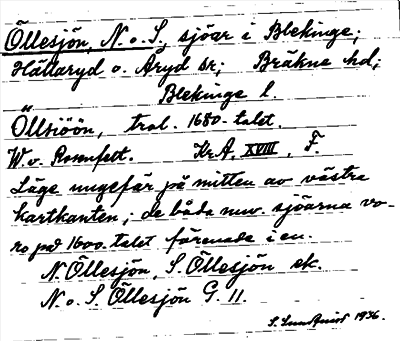 Öllesjön, N. o. S., sjöar i Blekinge;
Hällaryd o. Åryd sr; Bräkne hd;
Blekinge l.
Öllsiöön, trol. 1680-talet.
W. v. Rosenfelt. Kr.A. XVIII, F.
Läge ungefär på mitten av västra
kartkanten; de båda nuv. sjöarna vo-
ro på 1600-talet förenade i en.
N. Öllesjön, S. Öllesjön ek.
N. o. S. Öllesjön G. 11.
S. Lundquist 1936.